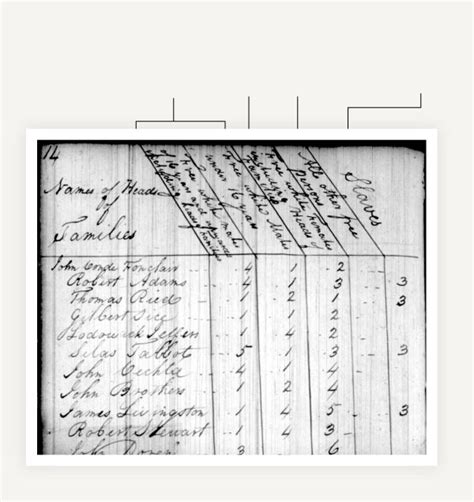 14
Names of Heads
of
Families
Free white males
of 16 years and upwards
including Heads of Families
Free white Males
under 16 years
Free white Females
including Heads of
Families
All other free
Persons
Slaves
John 4 1 2
Robert Adams 4 1 3 3
Thomas Reed 1 2 1 3
Gilbert 1 1 2
1 4 2
Silas Talbot 5 1 3 3
John 4 1 4
John Brothers 1 2 4
James Livingston 1 4 5 3
Robert Stewart 1 4 3
3 6